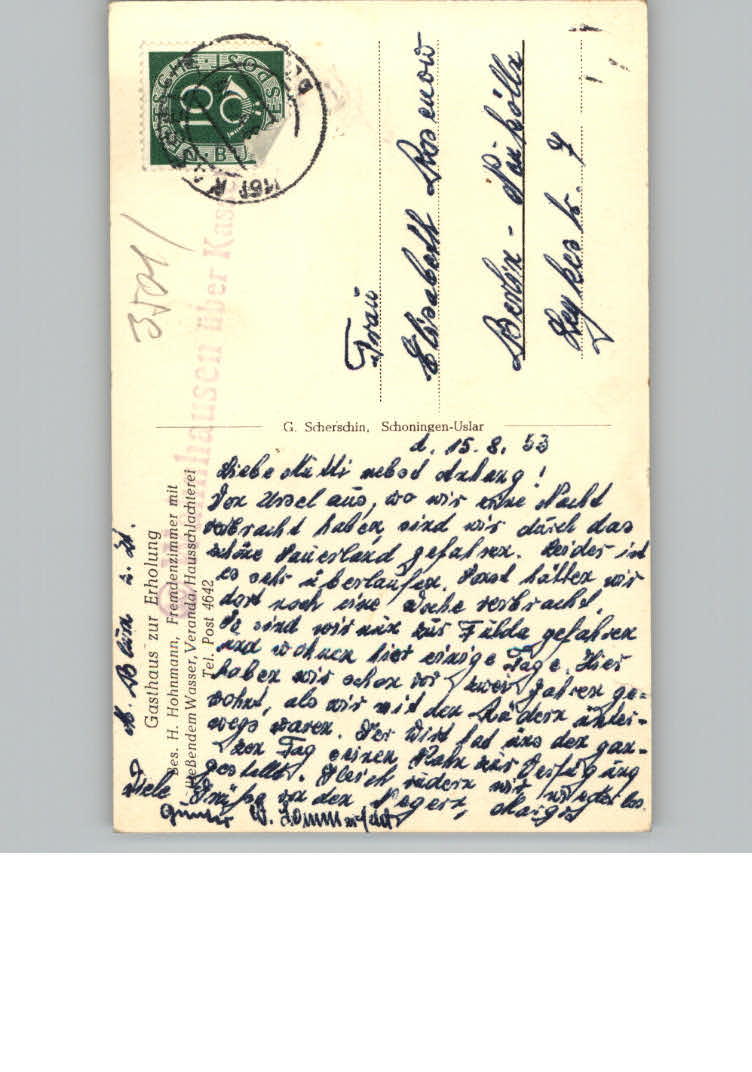 d. 15. 8. 53
Liebe Mutti nebst Anhang!
Von Ursel aus, wo wir eine Nacht
verbracht haben, sind wir durch das
schöne Sauerland gefahren. Leider ist
es sehr überlaufen. Sonst hätten wir
dort noch eine Woche verbracht.
So sind wir nun zur Fulda gefahren
und wohnen hier einige Tage. Hier
haben wir schon vor zwei Jahren ge=
wohnt, als wir mit den Rädern unter-
wegs waren. Der Wirt hat uns den gan-
zen Tag seinen Kahn zur Verfügung
gestellt. Gleich rudern wir wieder los.
Viele Grüße von den Negern, Margot
Günter W. Sommerfeld
Frau
Elisabeth Rosenow
Berlin - Neukölln
Leykestr. 7
G. Scherschin, Schoningen-Uslar
Gasthaus zur Erholung
Bes. H. Hohnmann, Fremdenzimmer mit
fließendem Wasser, Veranda, Hausschlachterei
Tel. Post 4642
hausen über Kas
3501/
DEUTSCHE BUNDESPOST
10